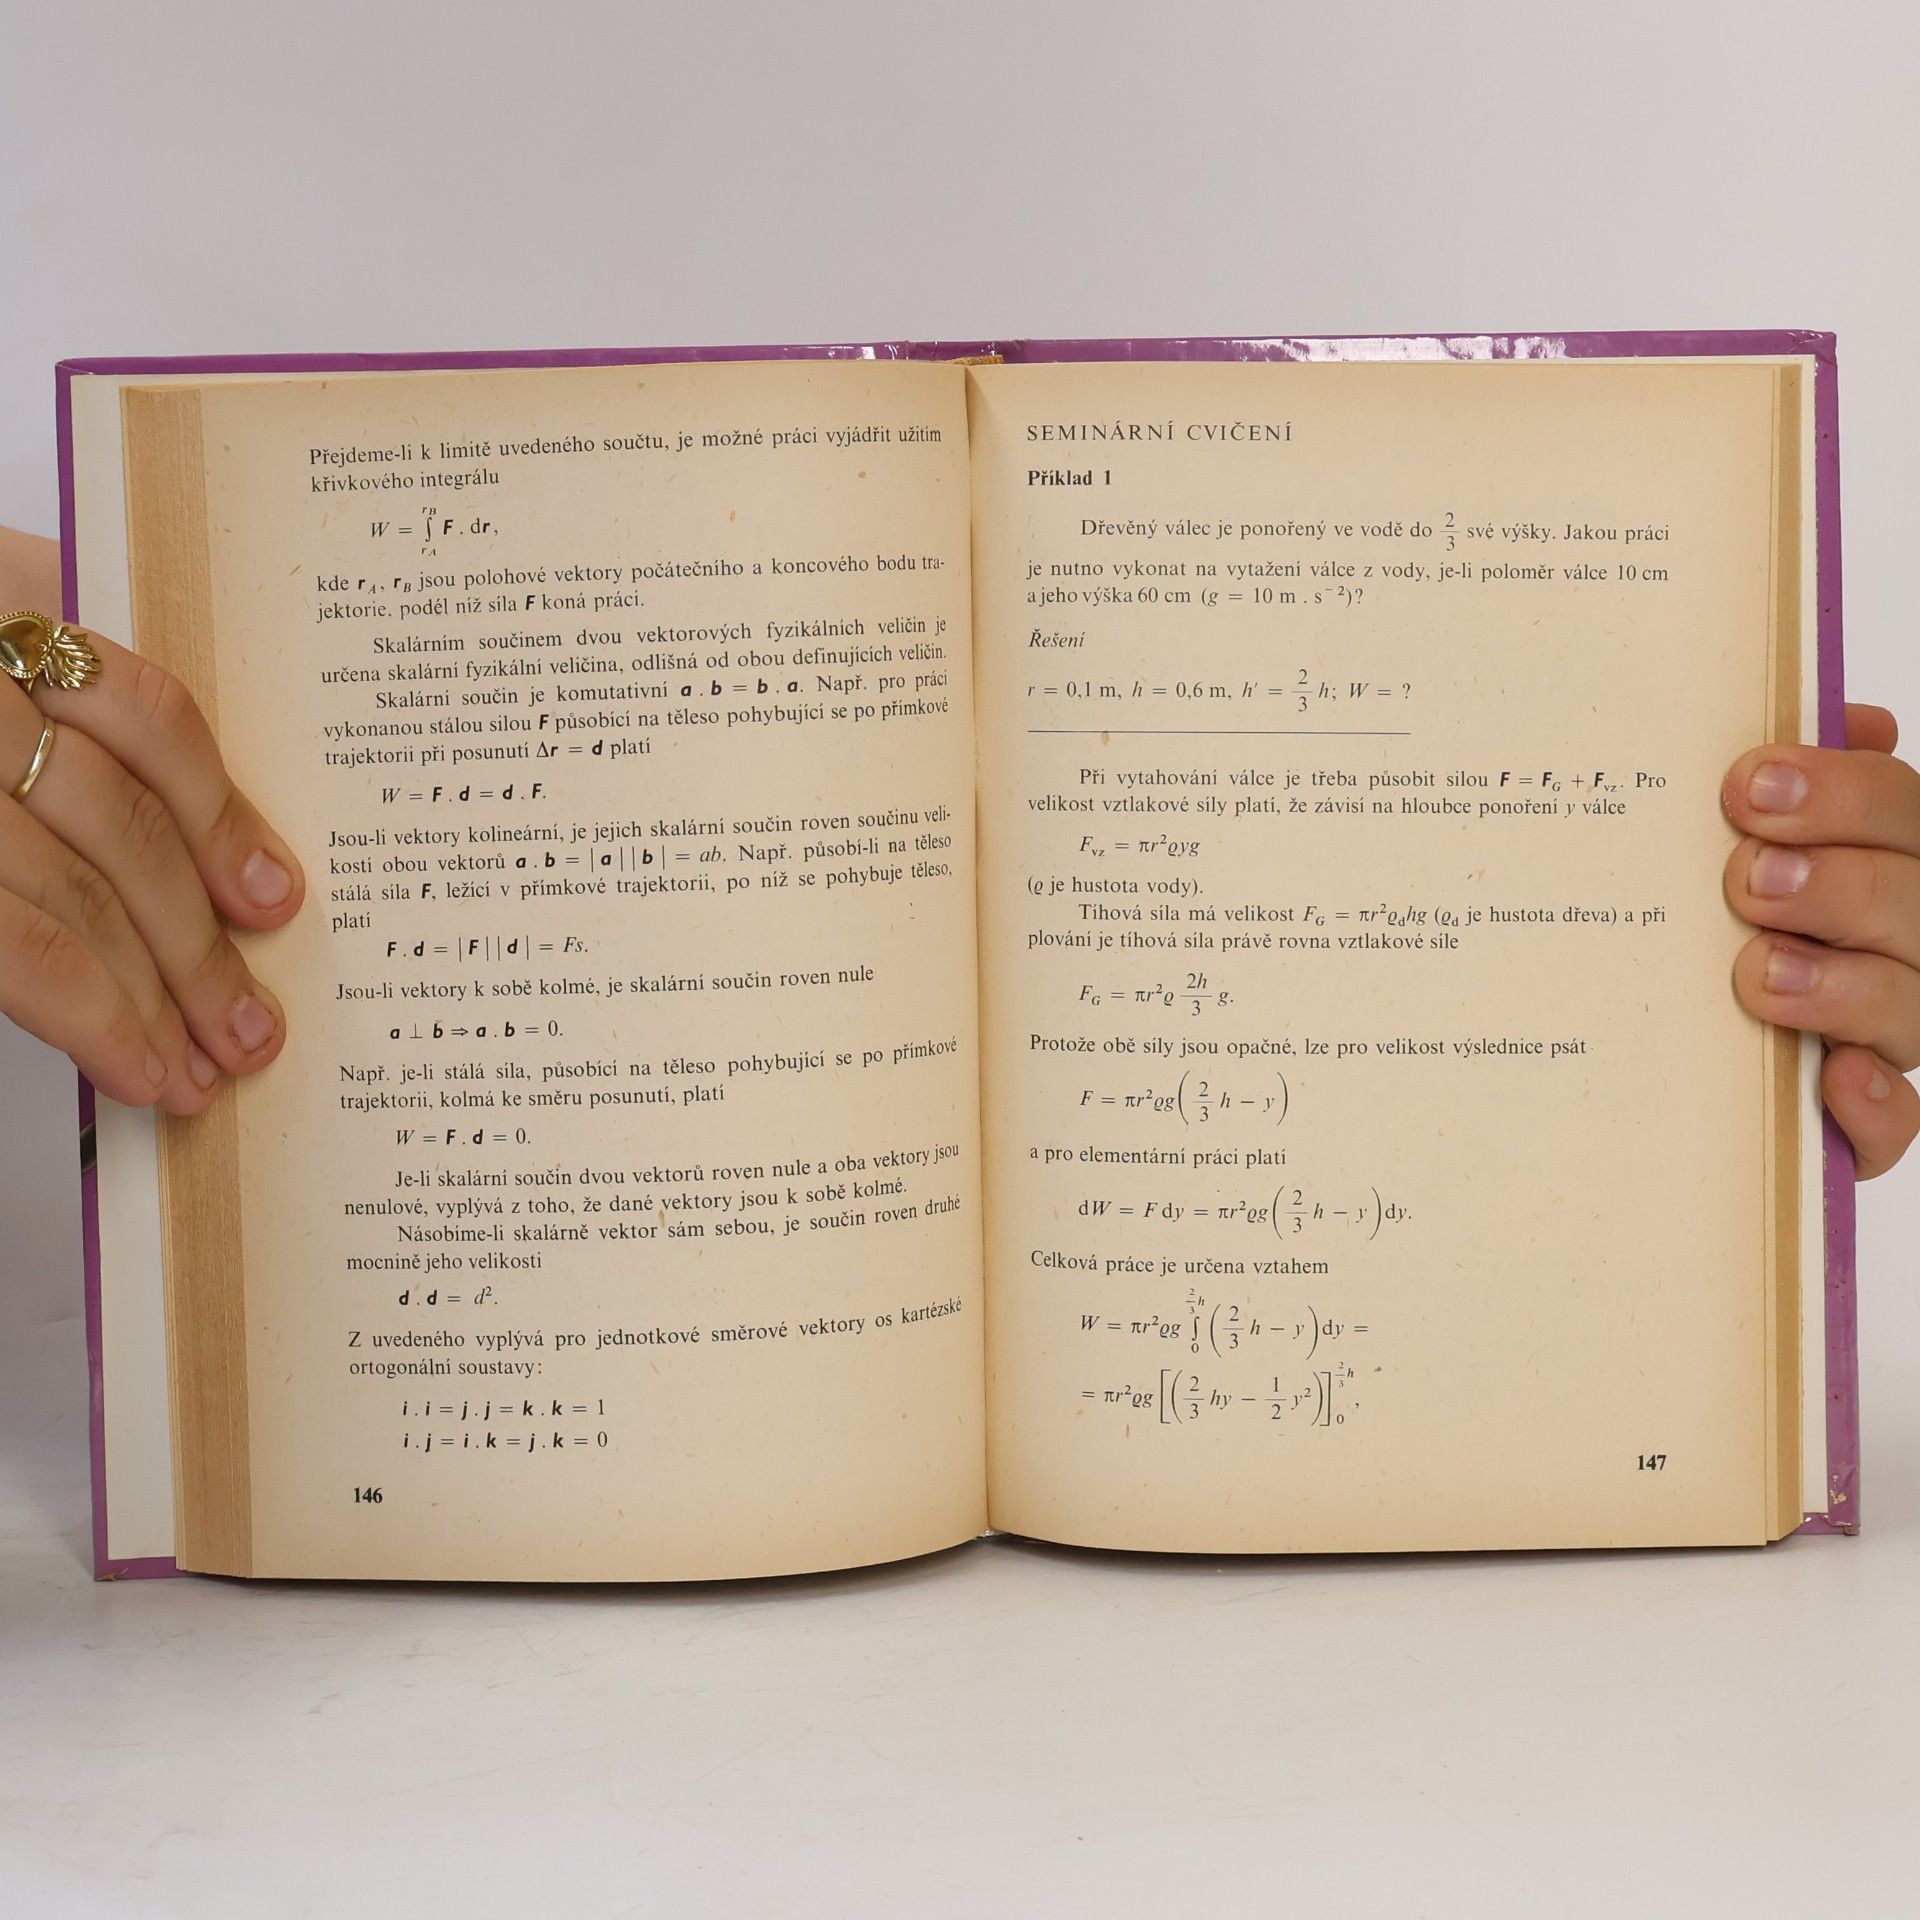 Přejdeme-li k limitě uvedeného součtu, je možné práci vyjádřit užitím
křivkového integrálu
W = ∫_{r_A}^{r_B} F . dr,
kde r_A, r_B jsou polohové vektory počátečního a koncového bodu tra-
jektorie, podél níž síla F koná práci.
Skalárním součinem dvou vektorových fyzikálních veličin je
určena skalární fyzikální veličina, odlišná od obou definujících veličin.
Skalární součin je komutativní a . b = b . a. Např. pro práci
vykonanou stálou silou F působící na těleso pohybující se po přímkové
trajektorii při posunutí Δr = d platí
W = F . d = d . F.
Jsou-li vektory kolineární, je jejich skalární součin roven součinu veli-
kostí obou vektorů a . b = |a||b| = ab. Např. působí-li na těleso
stálá síla F, ležící v přímkové trajektorii, po níž se pohybuje těleso,
platí
F . d = |F||d| = Fs.
Jsou-li vektory k sobě kolmé, je skalární součin roven nule
a ⊥ b ⇒ a . b = 0.
Např. je-li stálá síla, působící na těleso pohybující se po přímkové
trajektorii, kolmá ke směru posunutí, platí
W = F . d = 0.
Je-li skalární součin dvou vektorů roven nule a oba vektory jsou
nenulové, vyplývá z toho, že dané vektory jsou k sobě kolmé.
Násobíme-li skalárně vektor sám sebou, je součin roven druhé
mocnině jeho velikosti
d . d = d².
Z uvedeného vyplývá pro jednotkové směrové vektory os kartézské
ortogonální soustavy:
i . i = j . j = k . k = 1
i . j = i . k = j . k = 0
146
SEMINÁRNÍ CVIČENÍ
Příklad 1
Dřevěný válec je ponořený ve vodě do 2/3 své výšky. Jakou práci
je nutno vykonat na vytažení válce z vody, je-li poloměr válce 10 cm
a jeho výška 60 cm (g = 10 m . s⁻²)?
Řešení
r = 0,1 m, h = 0,6 m, h' = 2/3 h; W = ?
Při vytahování válce je třeba působit silou F = F_G + F_vz. Pro
velikost vztlakové síly platí, že závisí na hloubce ponoření y válce
F_vz = πr²ϱyg
(ϱ je hustota vody).
Tíhová síla má velikost F_G = πr²ϱ_d hg (ϱ_d je hustota dřeva) a při
plování je tíhová síla právě rovna vztlakové síle
F_G = πr²ϱ 2h/3 g.
Protože obě síly jsou opačné, lze pro velikost výslednice psát
F = πr²ϱg(2/3 h − y)
a pro elementární práci platí
dW = F dy = πr²ϱg(2/3 h − y)dy.
Celková práce je určena vztahem
W = πr²ϱg ∫_0^{2/3 h} (2/3 h − y)dy =
= πr²ϱg [(2/3 hy − 1/2 y²)]_0^{2/3 h},
147